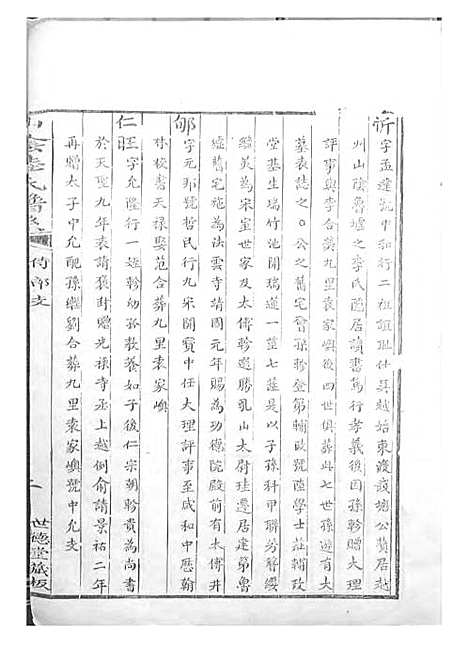 忻字孟達號中行二祖誼壯仕吳越始東渡
州山陰魯墟之李氏隱居讀書篤行孝義後因孫軫贈大理
評事與李合葬九里袁家嶴後四世俱葬斗七世孫遊有大
墓表誌之○公舊宅曾孫軫登第輔政號陸學士莊輔政
堂基生瑞竹池開瑞蓮一莖七蕋是以子孫科甲聯芳纓
繼美為宋室世家及太傅軫遊勝乳山太尉珪還居建第魯
墟舊宅施為法雲寺請園元年賜為功德院殿前有太傅井
郇字元邴號哲民行九宋開寶中任大理評事至咸和中歷翰
林校書天祿娶范合葬九里袁家嶴
仁旺字允隆行一姪軫幼孤教養如子後仁宗朝軫貴為尚書
於天聖九年表請褒贈光祿寺丞上越例俞請景祐二年
再贈太子中允配孫繼劉合葬九里袁家嶴號中允支
山陰陸氏譜 侍郎支
世德堂藏板